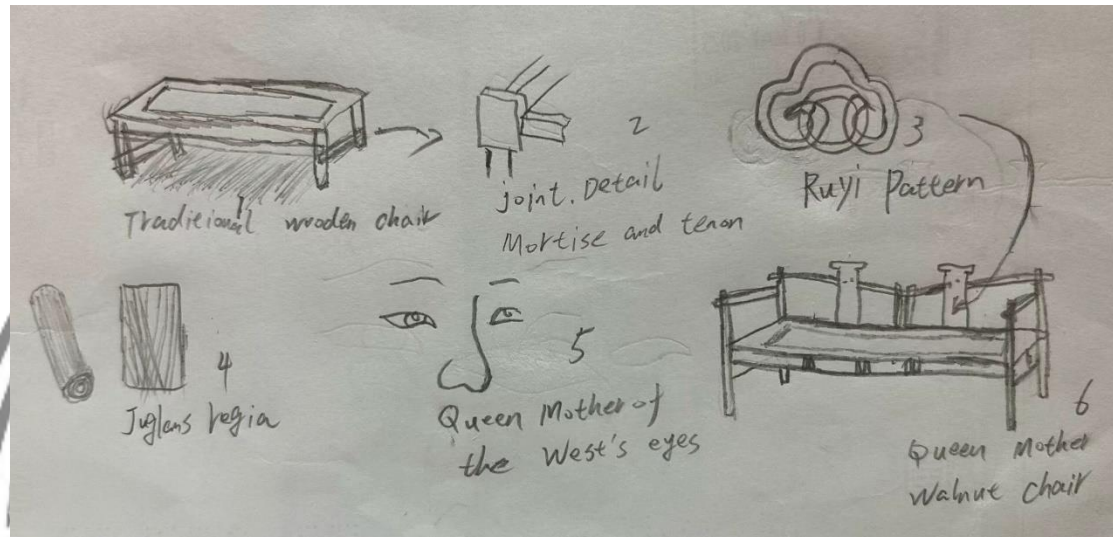 Traditional wooden chair
2
joint. Detail
Mortise and tenon
3
Ruyi Pattern
4
Juglans regia
5
Queen Mother of
the West's eyes
6
Queen Mother
Walnut chair